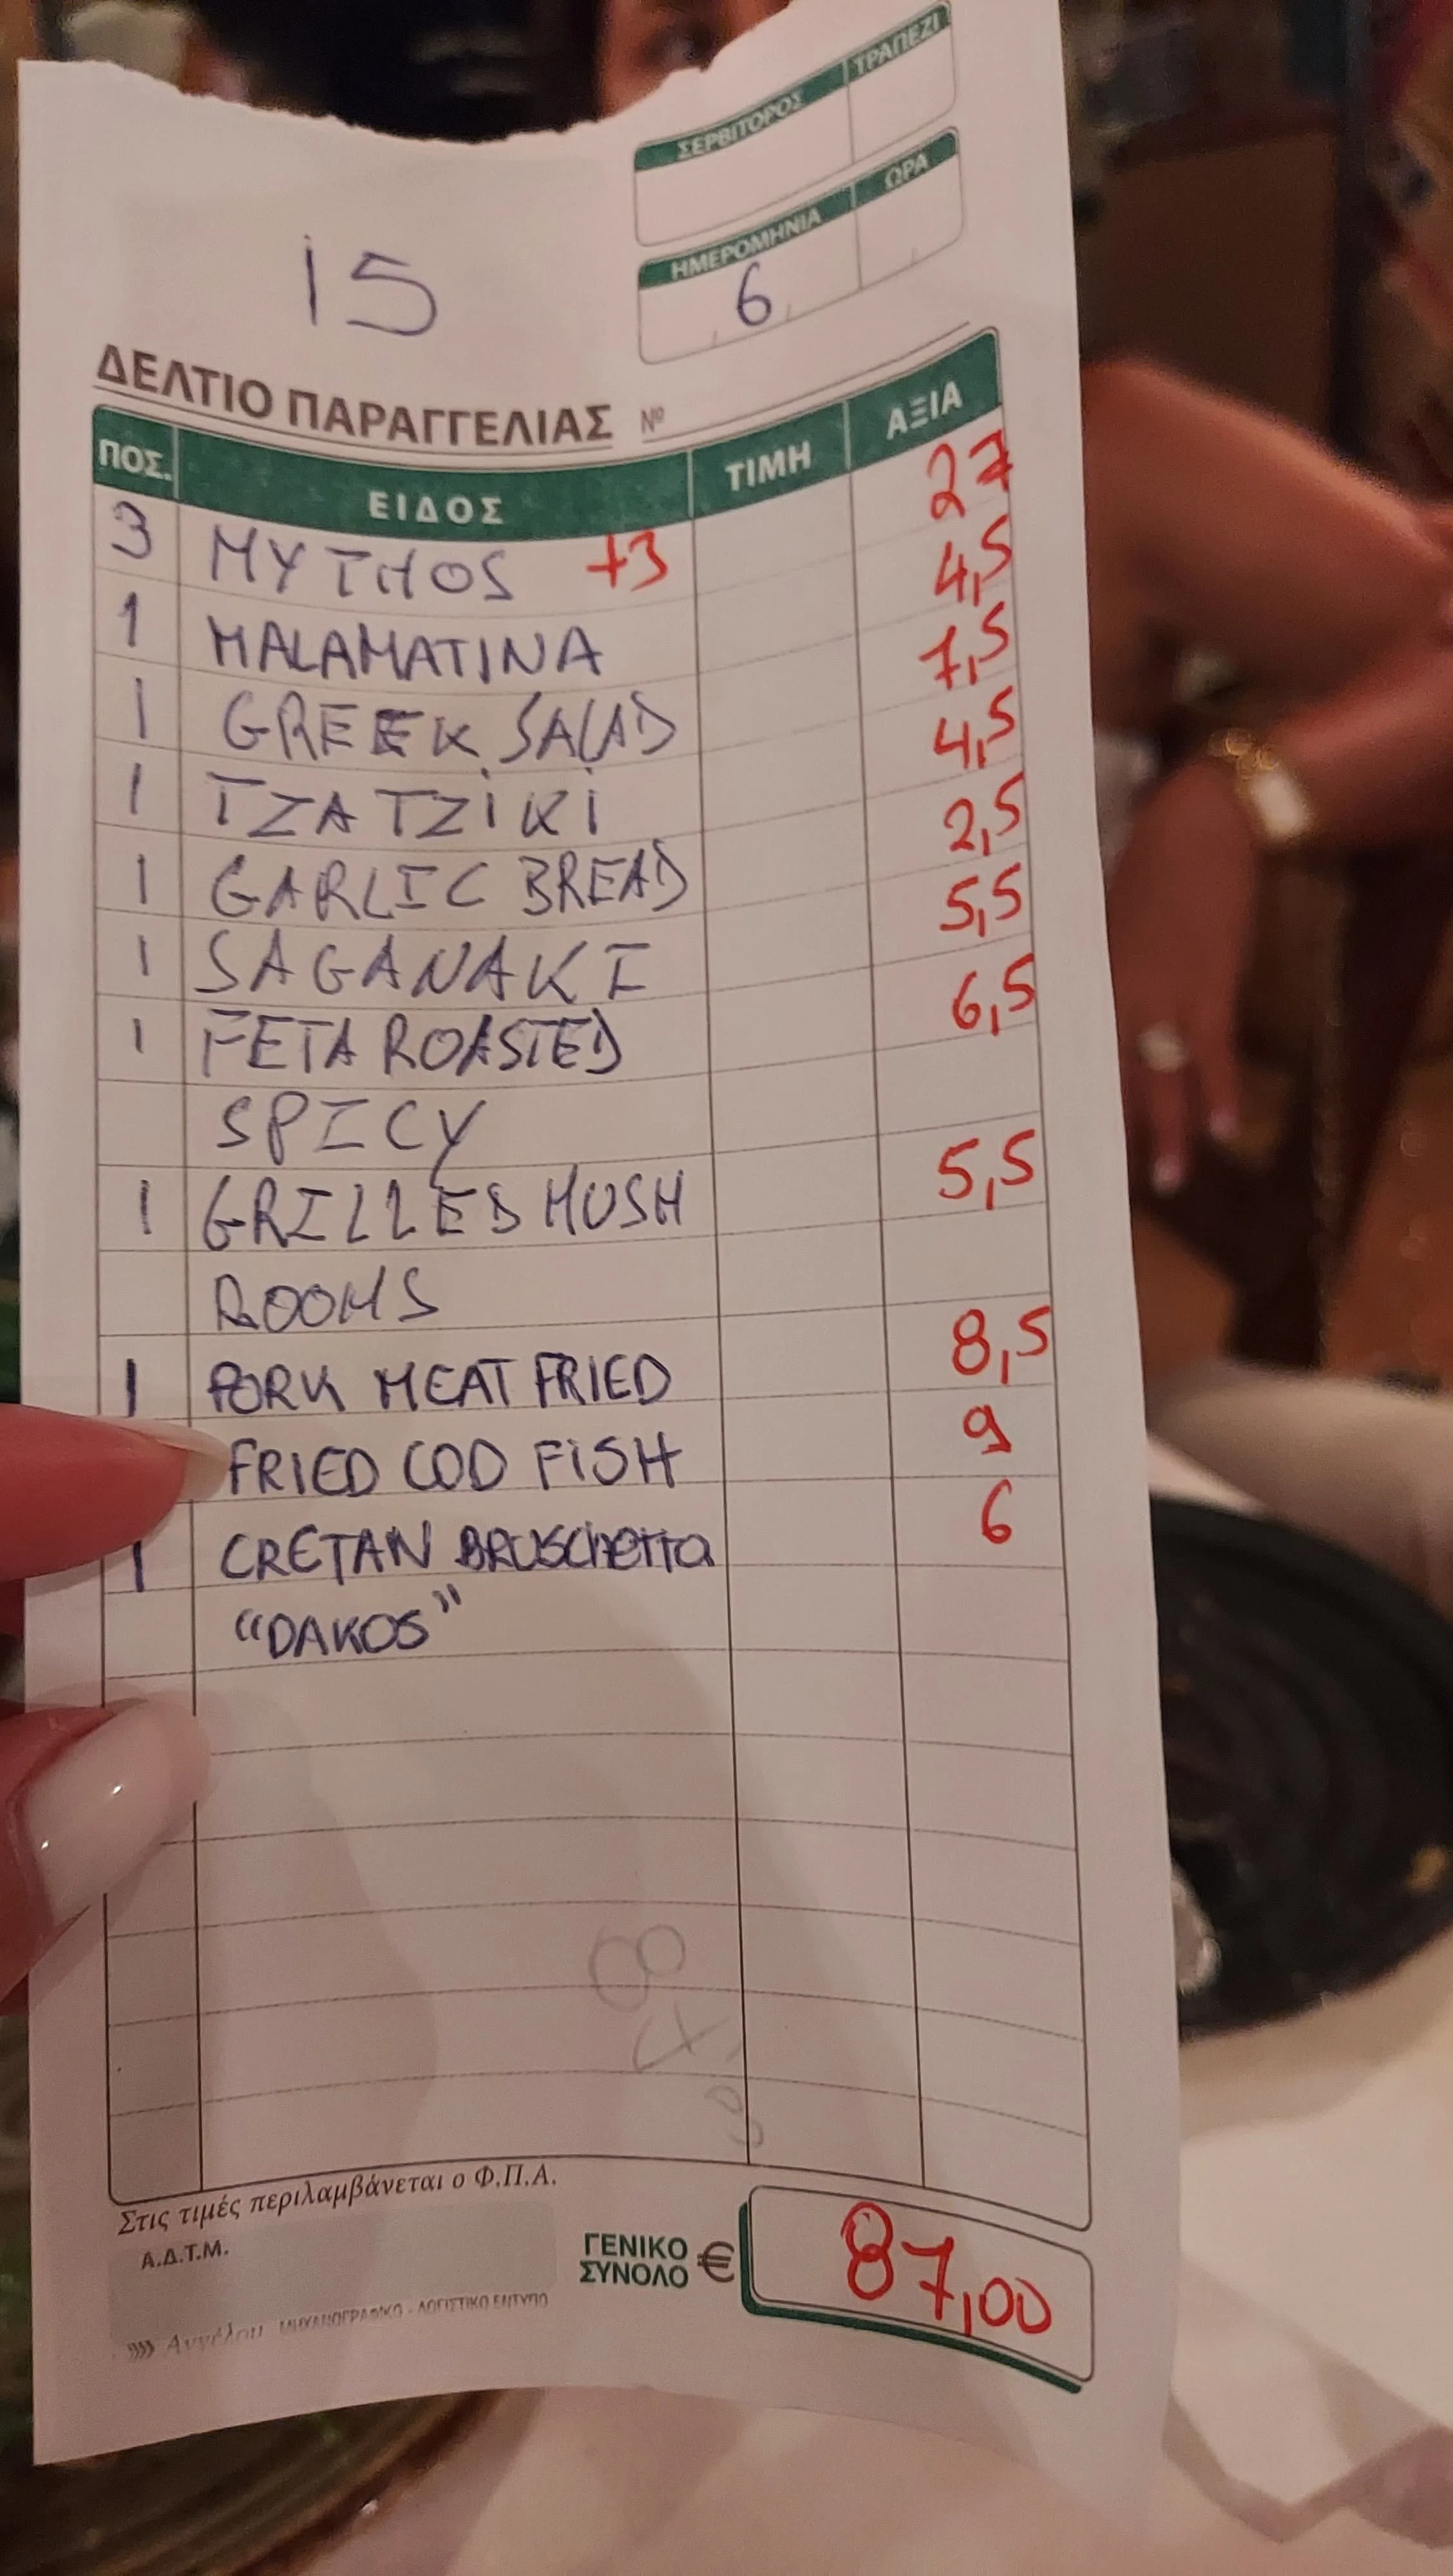 ΣΕΡΒΙΤΟΡΟΣ ΤΡΑΠΕΖΙ
ΗΜΕΡΟΜΗΝΙΑ ΩΡΑ
15 6
ΔΕΛΤΙΟ ΠΑΡΑΓΓΕΛΙΑΣ Νº
ΠΟΣ. ΕΙΔΟΣ ΤΙΜΗ ΑΞΙΑ
3 MYTHOS +3 27
1 MALAMATINA 4,5
1 GREEK SALAD 7,5
1 TZATZiKi 4,5
1 GARLIC BREAD 2,5
1 SAGANAKI 5,5
1 FETA ROASTED 6,5
SPICY
1 GRILLED MUSH 5,5
ROOMS
1 PORK MEAT FRIED 8,5
FRIED COD FiSH 9
1 CRETAN BRUSCHETTA 6
"DAKOS"
Στις τιμές περιλαμβάνεται ο Φ.Π.Α.
Α.Δ.Τ.Μ.
ΓΕΝΙΚΟ ΣΥΝΟΛΟ € 87,00
Αγγέλου ΜΗΧΑΝΟΓΡΑΦΙΚΟ - ΛΟΓΙΣΤΙΚΟ ΕΝΤΥΠΟ